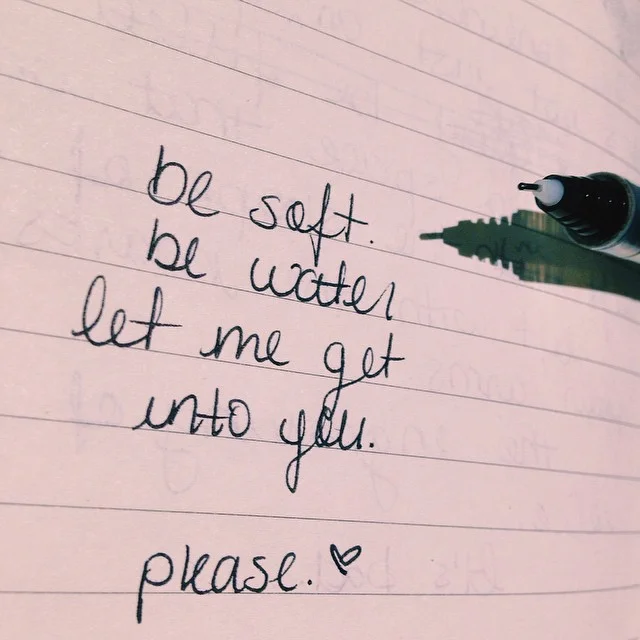 be soft.
be water
let me get
into you.
please. ♡